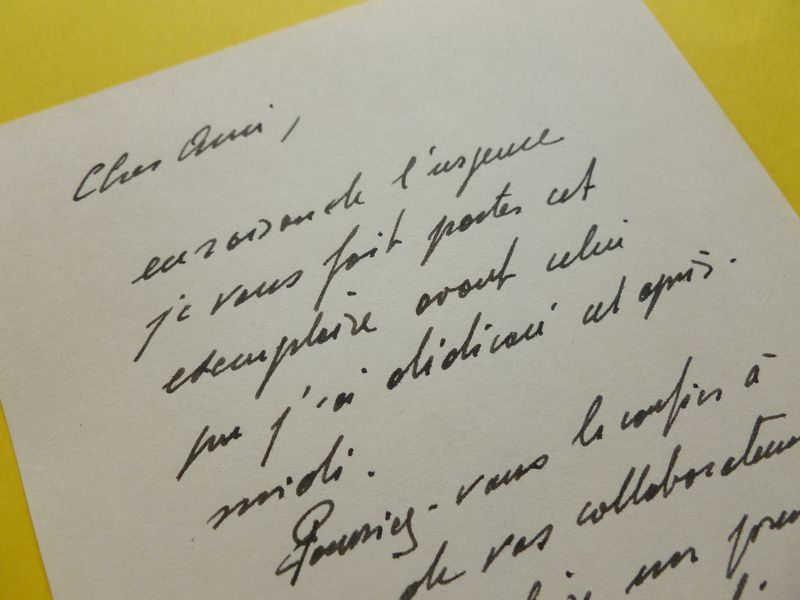 Cher Ami,
en raison de l'urgence
je vous fait porter cet
exemplaire avant celui
que j'ai dédicacé cet après.
midi.
Pourriez-vous le confier à
de vos collaborateurs
un